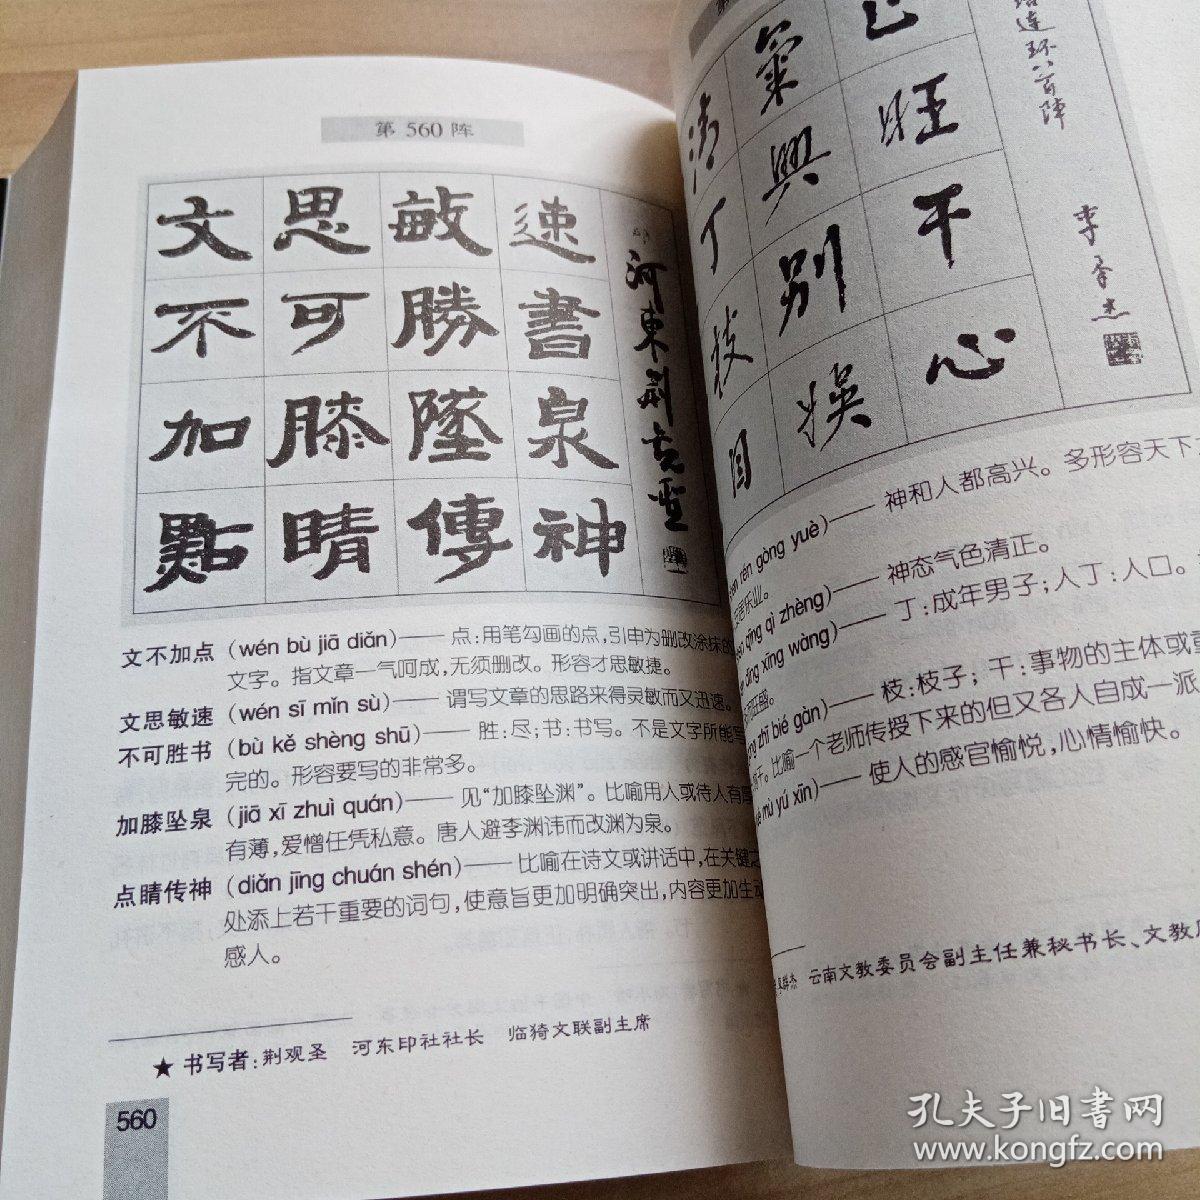 第 560 阵
文思敏速
不可勝書
加膝墜泉
點睛傳神
河東荆
文不加点(wén bù jiā diǎn)—— 点:用笔勾画的点,引申为删改涂抹的
文字。指文章一气呵成,无须删改。形容才思敏捷。
文思敏速(wén sī mǐn sù)—— 谓写文章的思路来得灵敏而又迅速。
不可胜书(bù kě shèng shū)—— 胜:尽;书:书写。不是文字所能写
完的。形容要写的非常多。
加膝坠泉(jiā xī zhuì quán)—— 见“加膝坠渊”。比喻用人或待人有厚
有薄,爱憎任凭私意。唐人避李渊讳而改渊为泉。
点睛传神(diǎn jīng chuán shén)—— 比喻在诗文或讲话中,在关键之
处添上若干重要的词句,使意旨更加明确突出,内容更加生动
感人。
★ 书写者:荆观圣 河东印社社长 临猗文联副主席
560
连环八百阵
氣
旺
清興干
丁别心
枝换
目
李
杰
rén gòng yuè)—— 神和人都高兴。多形容天下
居乐业。
qīng qì zhèng)—— 神态气色清正。
dīng xīng wàng)—— 丁:成年男子;人丁:人口。
zhī bié gàn)—— 枝:枝子;干:事物的主体或重
干。比喻一个老师传授下来的但又各人自成一派
yuè mù yú xīn)—— 使人的感官愉悦,心情愉快。
群杰 云南文教委员会副主任兼秘书长、文教
孔夫子旧书网
www.kongfz.com